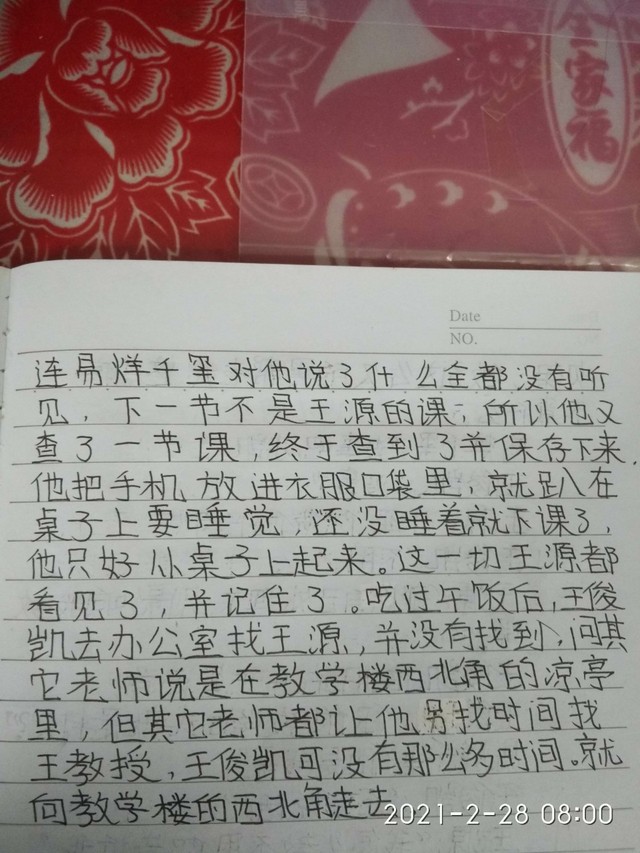 全家福
Date
NO.
连易烊千玺对他说了什么全都没有听
见，下一节不是王源的课，所以他又
查了一节课，终于查到了并保存下来，
他把手机放进衣服口袋里，就趴在
桌子上要睡觉，还没睡着就下课了，
他只好从桌子上起来。这一切王源都
看见了，并记住了。吃过午饭后，王俊
凯去办公室找王源，并没有找到，问其
它老师说是在教学楼西北角的凉亭
里，但其它老师都让他另找时间找
王教授，王俊凯可没有那么多时间。就
向教学楼的西北角走去
2021-2-28 08:00